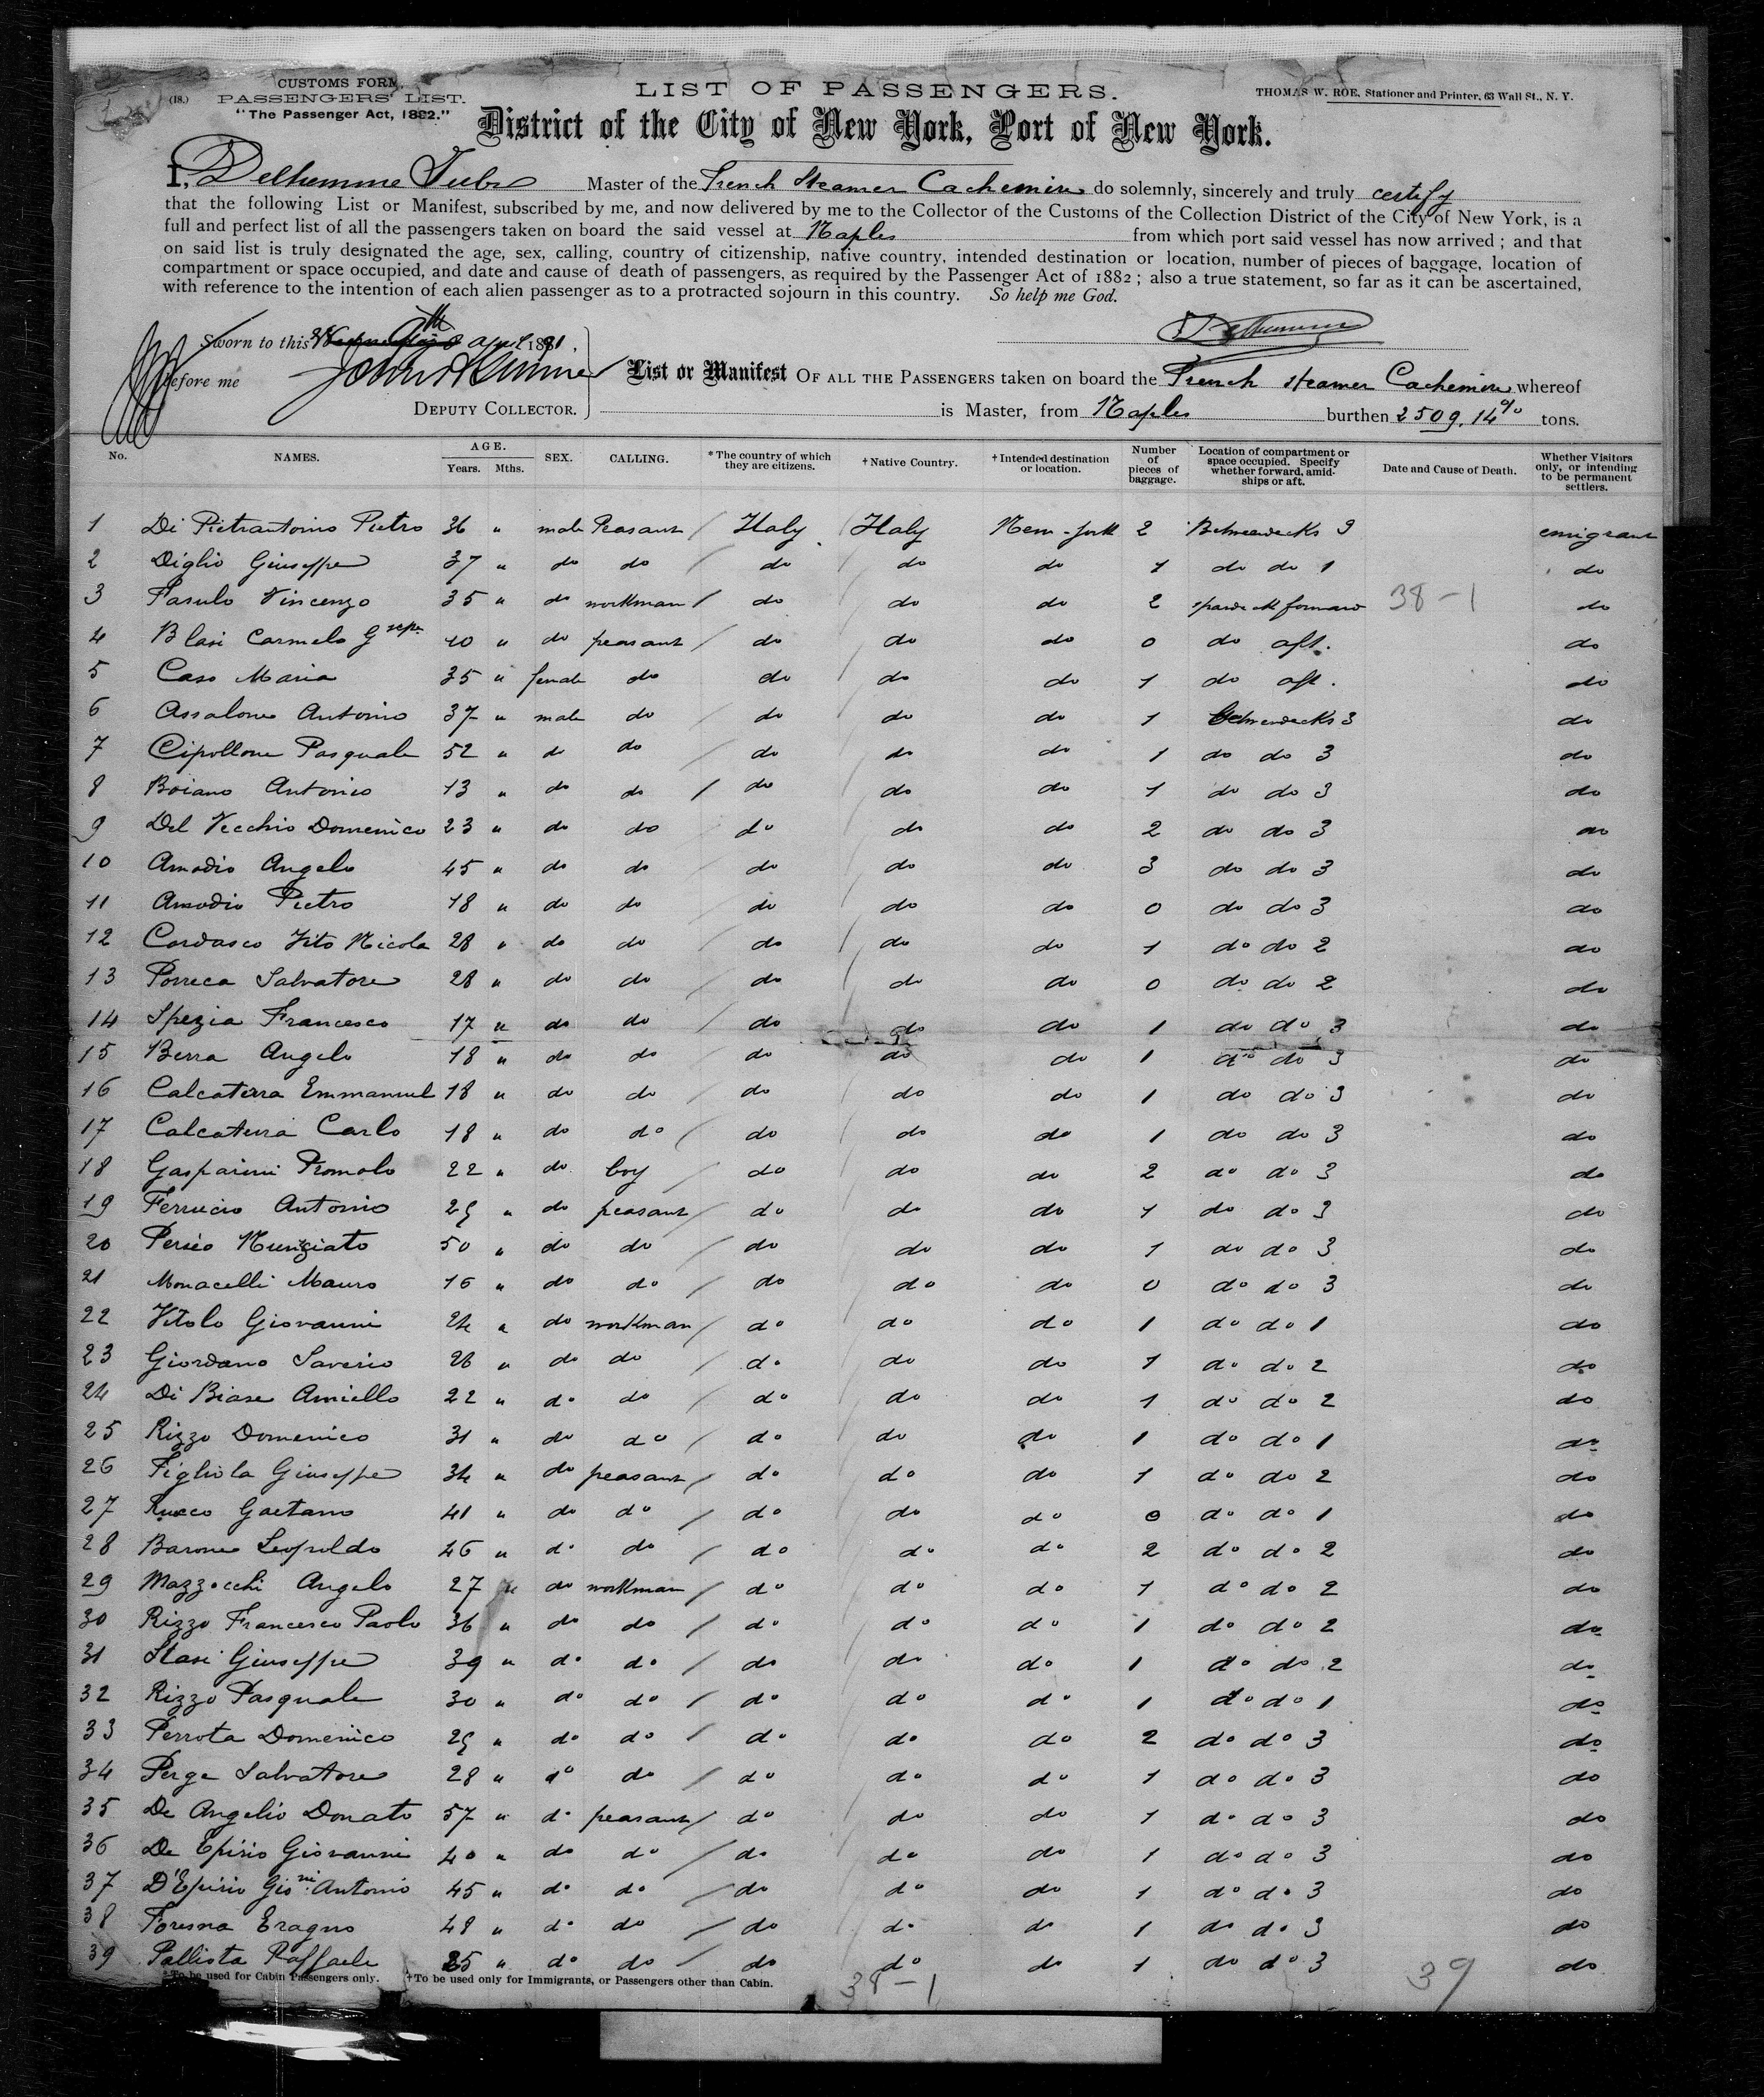 (18.)
CUSTOMS FORM,
PASSENGERS' LIST.
"The Passenger Act, 1882."
LIST OF PASSENGERS.
THOMAS W. ROE, Stationer and Printer, 63 Wall St., N. Y.
District of the City of New York, Port of New York.
I, Master of the French Steamer do solemnly, sincerely and truly certify
that the following List or Manifest, subscribed by me, and now delivered by me to the Collector of the Customs of the Collection District of the City of New York, is a
full and perfect list of all the passengers taken on board the said vessel at Naples from which port said vessel has now arrived; and that
on said list is truly designated the age, sex, calling, country of citizenship, native country, intended destination or location, number of pieces of baggage, location of
compartment or space occupied, and date and cause of death of passengers, as required by the Passenger Act of 1882; also a true statement, so far as it can be ascertained,
with reference to the intention of each alien passenger as to a protracted sojourn in this country. So help me God.
Sworn to this April 1891,
before me
DEPUTY COLLECTOR.
List or Manifest OF ALL THE PASSENGERS taken on board the French steamer whereof
is Master, from Naples burthen 2509.14 tons.
No. NAMES. AGE. Years. Mths. SEX. CALLING. * The country of which they are citizens. † Native Country. † Intended destination or location. Number of pieces of baggage. Location of compartment or space occupied. Specify whether forward, amidships or aft. Date and Cause of Death. Whether Visitors only, or intending to be permanent settlers.
1 Di Pietrantonio Pietro 36 " male Peasant / Italy / Italy New-York 2 Betweendecks 3 emigrant
2 Diglio Giuseppe 37 " do do / do / do do 1 do do 1 do
3 Fasulo Vincenzo 35 " do workman / do do do 2 spardeck forward 38-1 do
4 Blasi Carmelo Gsepe 40 " do peasant / do / do do 0 do aft. do
5 Caso Maria 35 " female do do / do do 1 do aft. do
6 Assalone Antonio 37 " male do / do / do do 1 Betweendecks 3 do
7 Cipollone Pasquale 52 " do do / do / do do 1 do do 3 do
8 Boiano Antonio 13 " do do / do / do do 1 do do 3 do
9 Del Vecchio Domenico 23 " do do / do / do do 2 do do 3 do
10 Amodio Angelo 45 " do do / do / do do 3 do do 3 do
11 Amodio Pietro 18 " do do / do / do do 0 do do 3 do
12 Cordasco Vito Nicola 28 " do do / do / do do 1 do do 2 do
13 Porreca Salvatore 28 " do do / do / do do 0 do do 2 do
14 Spezia Francesco 17 " do do / do / do do 1 do do 3 do
15 Berra Angelo 18 " do do / do do do 1 do do 3 do
16 Calcaterra Emmanuel 18 " do do / do / do do 1 do do 3 do
17 Calcaterra Carlo 18 " do do / do / do do 1 do do 3 do
18 Gasparini Romolo 22 " do boy / do / do do 2 do do 3 do
19 Ferrucio Antonio 25 " do peasant / do / do do 1 do do 3 do
20 Perseo Nunziato 50 " do do / do / do do 1 do do 3 do
21 Monacelli Mauro 16 " do do / do / do do 0 do do 3 do
22 Vitolo Giovanni 24 " do workman / do / do do 1 do do 1 do
23 Giordano Saverio 26 " do do / do / do do 1 do do 2 do
24 Di Biase Aniello 22 " do do / do / do do 1 do do 2 do
25 Rizzo Domenico 31 " do do / do / do do 1 do do 1 do
26 Figliola Giuseppe 34 " do peasant / do / do do 1 do do 2 do
27 Gaetano 41 " do do / do / do do 0 do do 1 do
28 Barone Leopoldo 46 " do do / do / do do 2 do do 2 do
29 Mazzocchi Angelo 27 " do workman / do / do do 1 do do 2 do
30 Rizzo Francesco Paolo 36 " do do / do / do do 1 do do 2 do
31 Stasi Giuseppe 39 " do do / do / do do 1 do do 2 do
32 Rizzo Pasquale 30 " do do / do / do do 1 do do 1 do
33 Perrota Domenico 25 " do do / do / do do 2 do do 3 do
34 Perge Salvatore 28 " do do / do / do do 1 do do 3 do
35 De Angelis Donato 57 " do peasant / do / do do 1 do do 3 do
36 De Epirio Giovanni 40 " do do / do / do do 1 do do 3 do
37 D'Epirio Gioni Antonio 45 " do do / do / do do 1 do do 3 do
38 Eragno 48 " do do / do / do do 1 do do 3 do
39 Pallista Raffaele 25 " do do / do / do do 1 do do 3 do
* To be used for Cabin Passengers only. † To be used only for Immigrants, or Passengers other than Cabin.
38-1
39